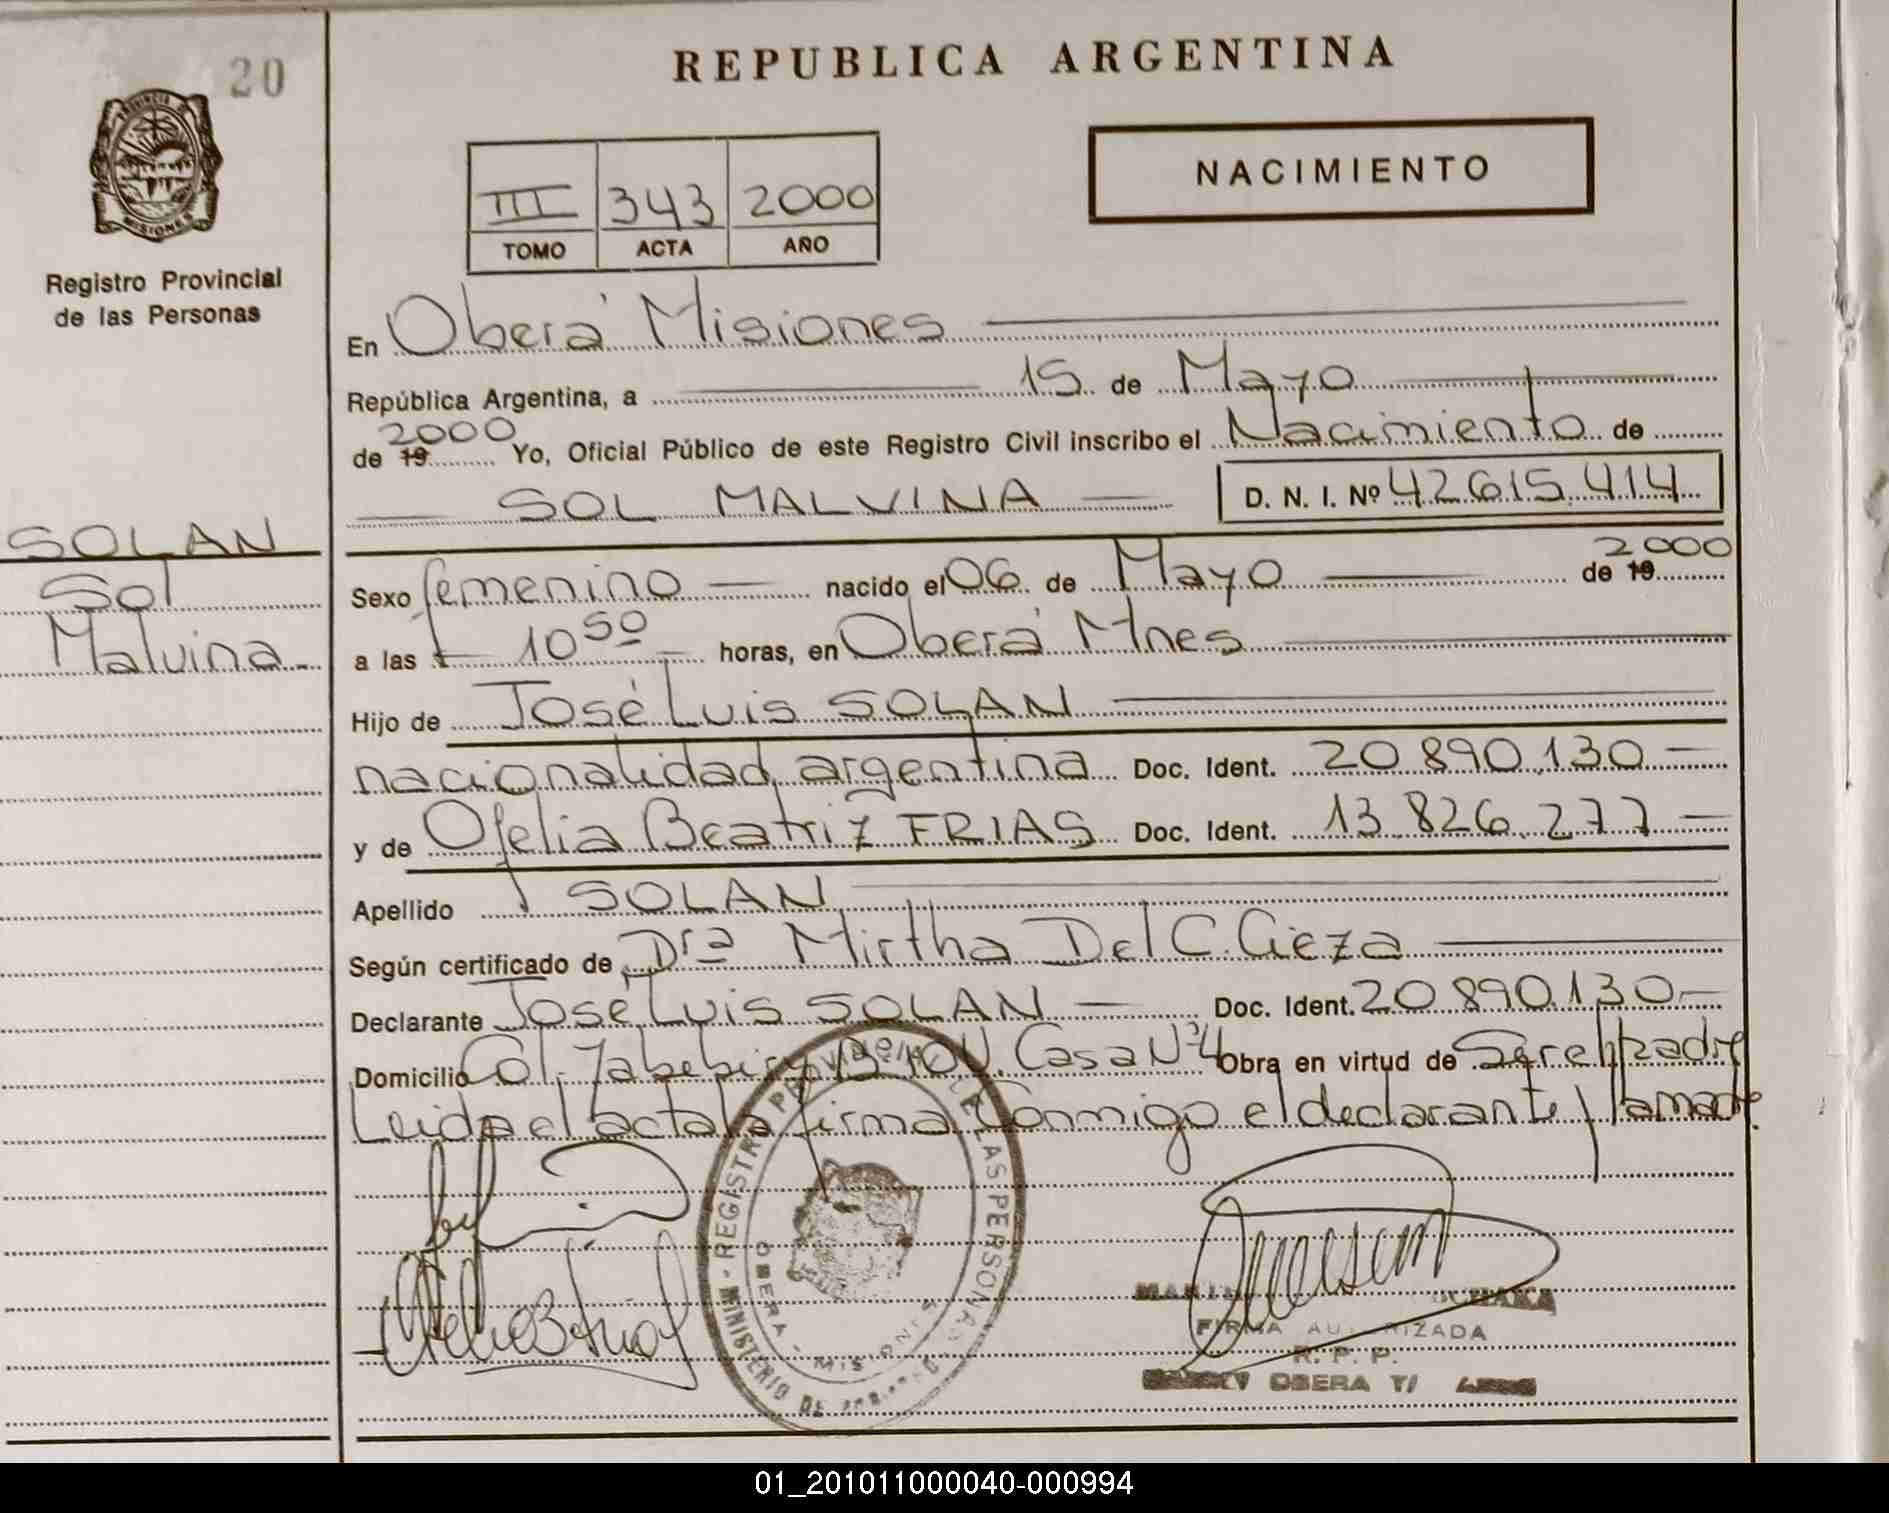 20
REPUBLICA ARGENTINA
NACIMIENTO
III 343 2000
TOMO ACTA AÑO
Registro Provincial
de las Personas
En Oberá Misiones
República Argentina, a 15 de Mayo
de 19 2000 Yo, Oficial Público de este Registro Civil inscribo el Nacimiento de
SOL MALVINA D. N. I. Nº 42.615.414
SOLAN
Sol
Malvina
Sexo femenino nacido el 06 de Mayo de 19 2000
a las 10 50 horas, en Oberá Mnes
Hijo de José Luis SOLAN
nacionalidad argentina Doc. Ident. 20.890.130
y de Ofelia Beatriz FRIAS Doc. Ident. 13.826.277
Apellido SOLAN
Según certificado de Dra Mirtha Del C. Cieza
Declarante José Luis SOLAN Doc. Ident. 20.890.130
Domicilio Col. Yabebiry Bº 10 V. Casa Nº 4 Obra en virtud de Ser el padre
Leida el acta la firma conmigo el declarante y la madre.
REGISTRO PROVINCIAL DE LAS PERSONAS
MINISTERIO DE GOBIERNO
OBERA - MISIONES
FIRMA AUTORIZADA
R. P. P.
OBERA
01_201011000040-000994